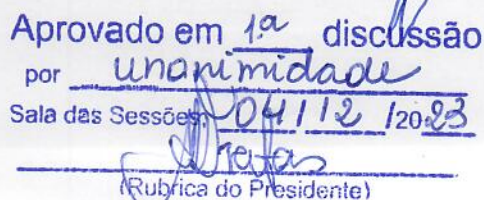 Aprovado em 1ª discussão
por unanimidade
Sala das Sessões, 04/12/2023
(Rubrica do Presidente)